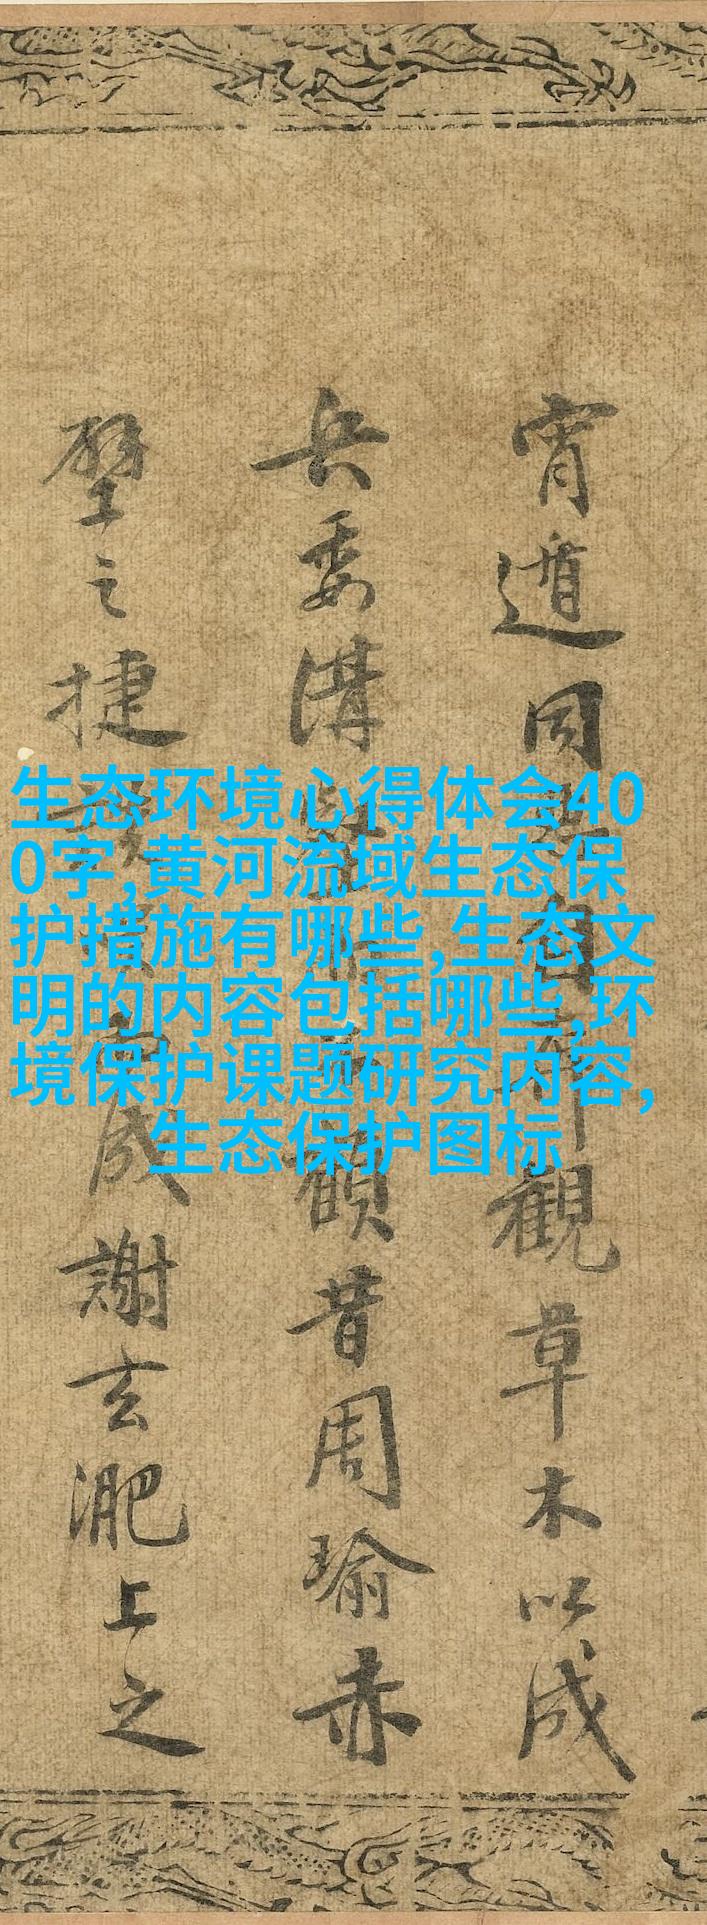 生态环境心得体会40
0字,黄河流域生态保
护措施有哪些,生态文
明的内容包括哪些,环
境保护课题研究内容,
生态保护图标
宵遁同自觀草木以成
兵委溝顧昔周瑜赤
壁之捷成謝玄淝上之